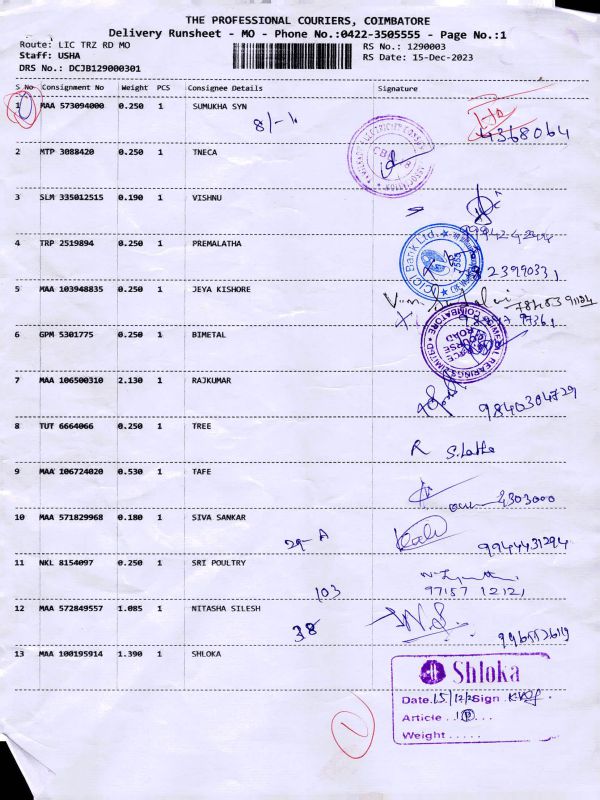 THE PROFESSIONAL COURIERS, COIMBATORE
Delivery Runsheet - MO - Phone No.:0422-3505555 - Page No.:1
Route: LIC TRZ RD MO RS No.: 1290003
Staff: USHA RS Date: 15-Dec-2023
DRS No.: DCJB129000301
S No Consignment No Weight PCS Consignee Details Signature
1 MAA 573094000 0.250 1 SUMUKHA SYN
4368064
2 MTP 3088420 0.250 1 TNECA
3 SLM 335012515 0.190 1 VISHNU
4 TRP 2519894 0.250 1 PREMALATHA
ICICI Bank Ltd.
2399033
5 MAA 103948835 0.250 1 JEYA KISHORE
6 GPM 5301775 0.250 1 BIMETAL
7 MAA 106500310 2.130 1 RAJKUMAR
9840304729
8 TUT 6664066 0.250 1 TREE
R S.Latha
9 MAA 106724020 0.530 1 TAFE
4303000
10 MAA 571829968 0.180 1 SIVA SANKAR
29-A 9944431294
11 NKL 8154097 0.250 1 SRI POULTRY
103 97157 12121
12 MAA 572849557 1.085 1 NITASHA SILESH
38
13 MAA 100195914 1.390 1 SHLOKA
Shloka
Date 15/12/23 Sign
Article
Weight